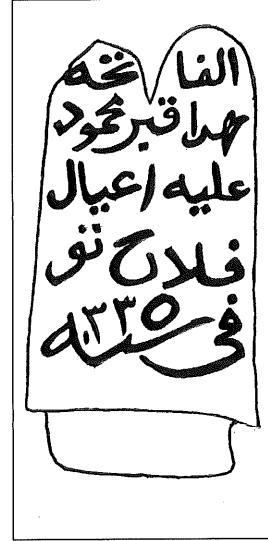 الفا تحه
هدا قبر محمود
عليه اعيال
فلاح تو
فى سنه ٣٣٥